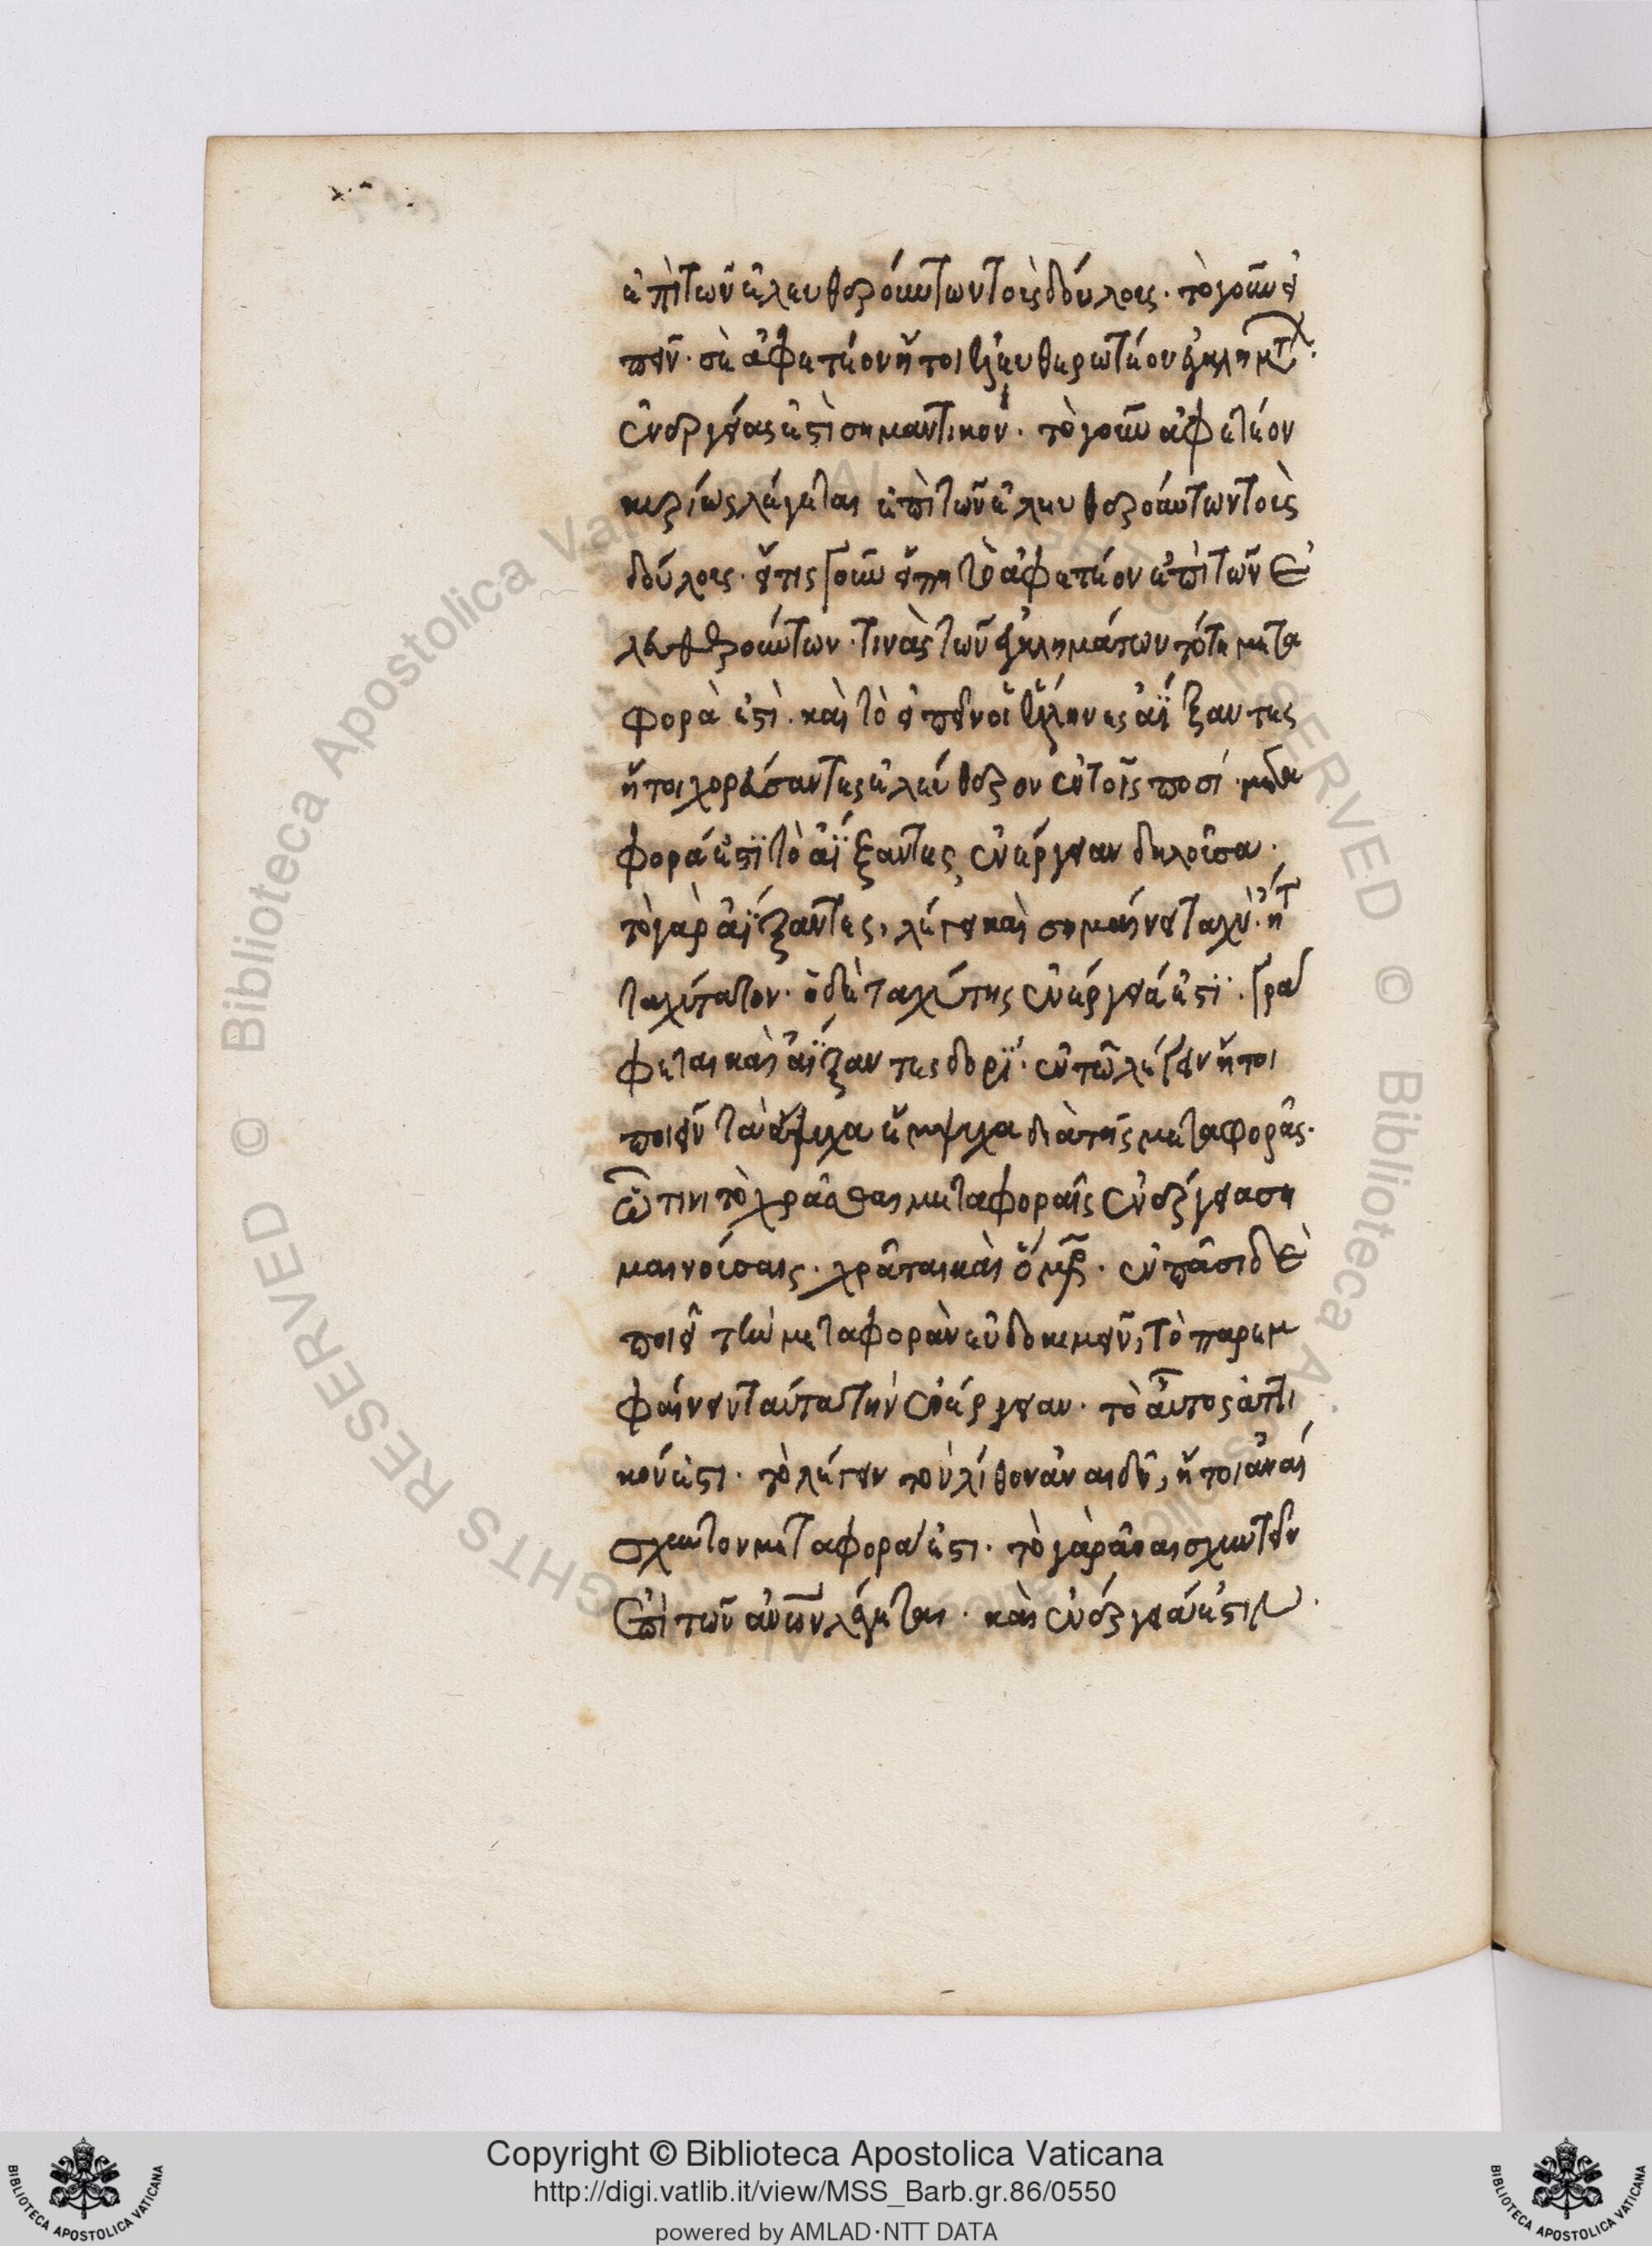 ἐπὶ τῶν ἐλευθερούντων τοὺς δούλους. τὸ γοῦν εἰ
πεῖν. σὲ ἀφετέον ἤτοι ἐλευθερωτέον ἐγκλημάτων.
ἐνεργείας ἐστὶ σημαντικόν. τὸ γοῦν ἀφετέον
κυρίως λέγεται ἐπὶ τῶν ἐλευθερούντων τοὺς
δούλους. εἴ τις γοῦν εἴπῃ τὸ ἀφετέον ἐπὶ τῶν ἐ
λευθερούντων. τινὰς τῶν ἐγκλημάτων τότε μετα
φορὰ ἐστὶ. καὶ τὸ εἰπεῖν οἱ ἕλληνες ἀΐξαντες
ἤτοι χορεύσαντες ἐλεύθερον ἐν τοῖς ποσί. μετα
φορά ἐστϊ τὸ ἀΐξαντες ἐνέργειαν δηλοῦσα.
τὸ γὰρ ἀΐξαντες, λέγει καὶ σημαίνει ταχὺ. ἤτ
ταχύτατον. ὁ δὲ ταχύτης ἐνέργειά ἐστϊ. γρά
φεται καὶ ἀΐξαντες δορϊ. ἐν τῶ λέγειν ἤτοι
ποιεῖν τὰ ἄψυχα ἔμψυχα διὰ τῆς μεταφορᾶς.
ὧτινι τὸ χρᾶσθαι μεταφοραῖς ἐνέργεια ση
μαινούσαις. χρᾶται καὶ ὅμηρος. ἐν πᾶσι δὲ
ποιεῖ τὴν μεταφορὰν εὐδοκιμεῖν, τὸ παρεμ
φαίνειν ταύτα τὴν ἐνέργειαν. τὸ αὖτος ἀττι
κόν ἐστι. τὸ λέγειν τὸν λίθον ἀναιδῆ, ἤτοι ἀναί
σχυντον μεταφορά ἐστι. τὸ γὰρ ἀναισχυντεῖν
ἐπὶ τῶν ἀνων λέγεται. καὶ ἐνέργειά ἐστιν.
Copyright © Biblioteca Apostolica Vaticana
http://digi.vatlib.it/view/MSS_Barb.gr.86/0550
powered by AMLAD·NTT DATA